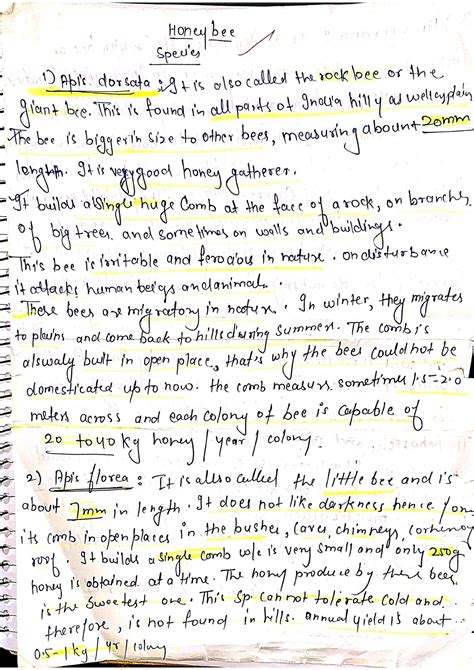 Honey bee
Species
1) Apis dorsata : It is also called the rock bee or the
giant bee. This is found in all parts of India hilly as well as plain
The bee is bigger in size to other bees, measuring abount 20mm
length. It is very good honey gatherer.
It builds a single huge Comb at the face of a rock, on branches
of big trees. and sometimes on walls and buildings.
This bee is irritable and ferocious in nature. on disturbance
it attacks human beigs and animal.
These bees are migratory in nature. In winter, they migrates
to plains and come back to hills during summer. The comb is
alswaly built in open place, that's why the bees could not be
domesticated up to now. the comb measurs. sometimes 1.5-2.0
meters across and each colony of bee is capable of
20 to 40 kg honey / year / colony.
2) Apis florea : It is also called the little bee and is
about 7mm in length. It does not like darkness hence
its comb in open places in the bushes, caves, chimneys,
roof. It builds a single comb is very small and only 250g
honey is obtained at a time. The hony produce by these bees.
is the sweetest one. This sp. cannot tolerate cold and.
therefore, is not found in hills. annual yield is about
0.5-1 kg / yr / colony